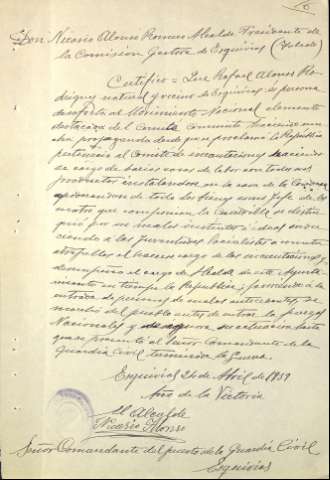 Don Nicasio Alonso Romero Alcalde Presidente de
la Comision Gestora de Esquivias (Toledo)
Certifico = Que Rafael Alonso Ro
driguez natural y vecino de Esquivias es persona
desafecta al Movimiento Nacional elemento
destacado del Comite Comunista haciendo mu
cha propaganda desde que se proclamo la Republica
pertenecio al Comité de incautaciones haciendose
cargo de varias casas de labor con todos sus
productos instalandose en la casa de la
apoderandose de todo los bienes como Jefe de los
que componian la cuadrilla se distin
guio por sus malos instintos e ideas
ciando a las Juventudes Socialistas a cometer
atropellos al hacerse cargo de las incautaciones y
desempeño el cargo de Alcalde de este Ayunta
miento en tiempo la Republica, a la
entrada de personas de malos antecedentes, se
marcho del pueblo antes de entrar las fuerzas
Nacionales y su actuacion hasta
que se presento al Señor Comandante de la
Guardia Civil terminada la Guerra.
Esquivias 24 de Abril de 1939
Año de la Victoria
El Alcalde
Nicasio Alonso
Señor Comandante del puesto de la Guardia Civil
Esquivias